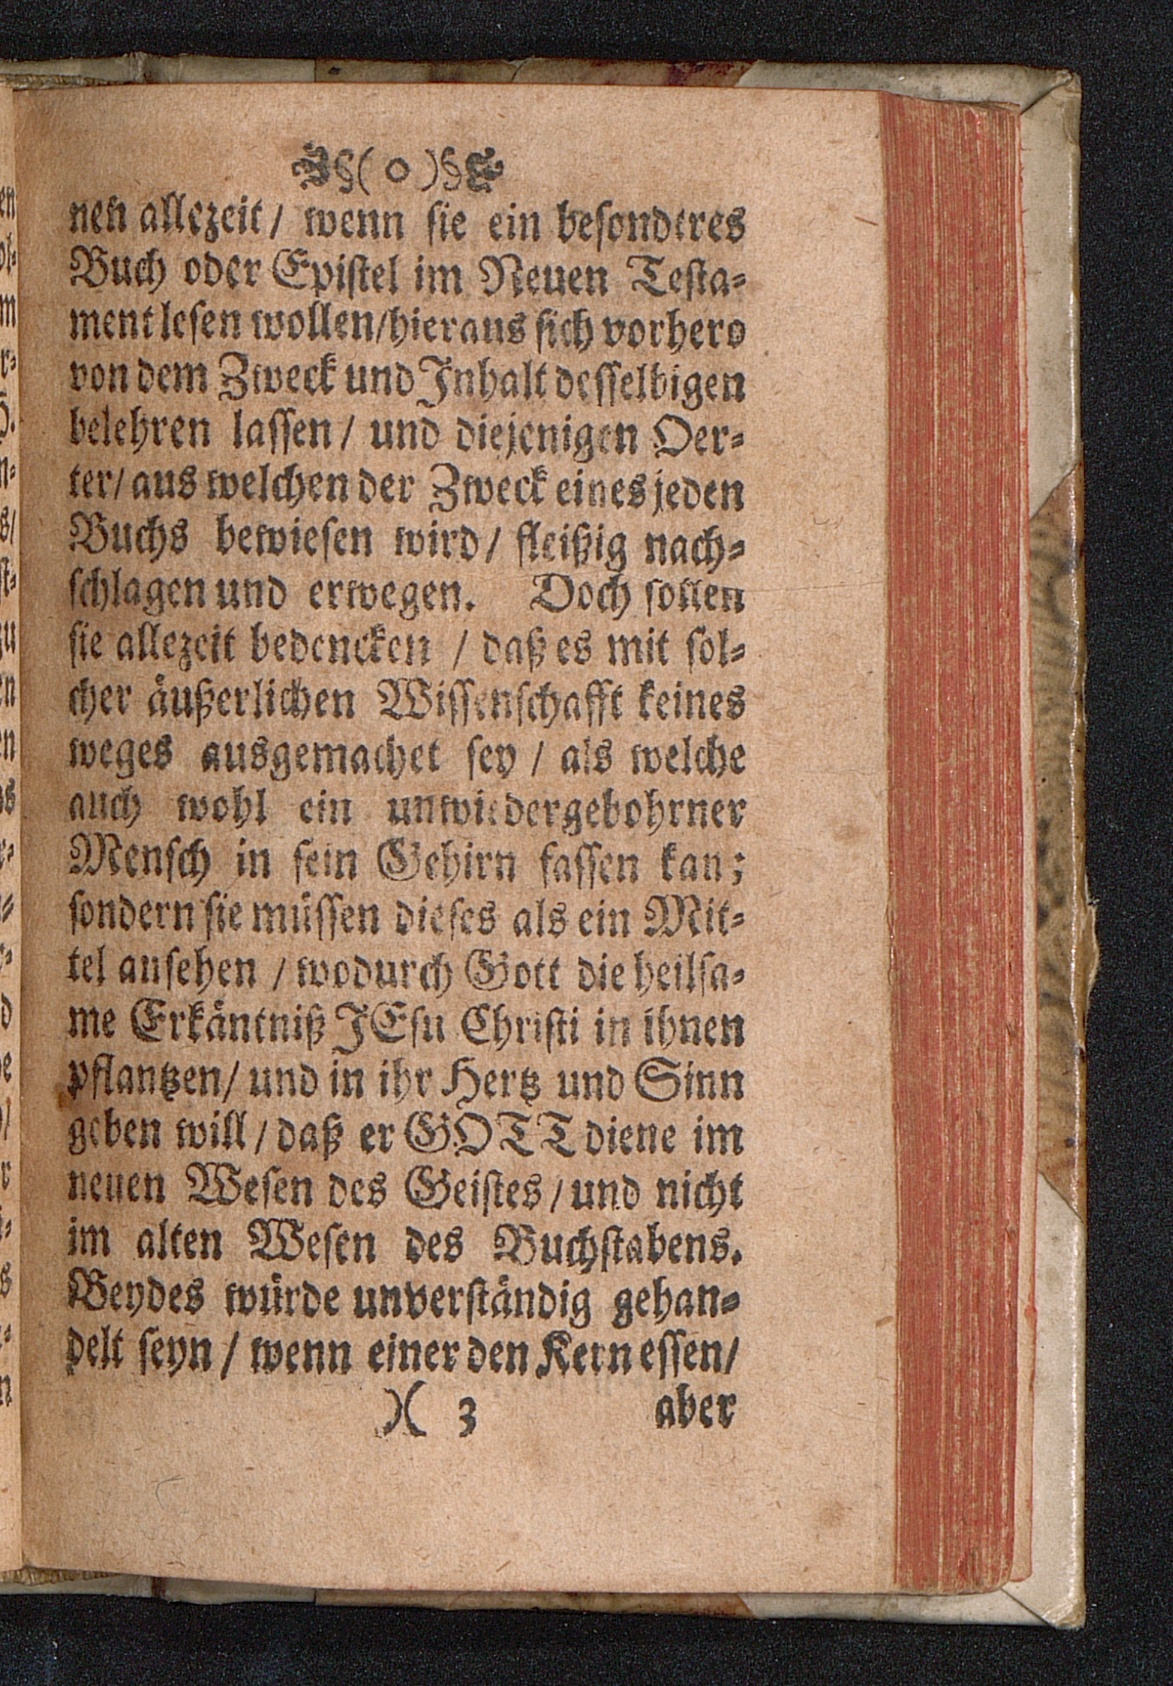 §( o )§
nen allezeit/ wenn sie ein besonderes
Buch oder Epistel im Neuen Testa-
ment lesen wollen/hieraus sich vorhero
von dem Zweck und Inhalt desselbigen
belehren lassen/ und diejenigen Oer-
ter/ aus welchen der Zweck eines jeden
Buchs bewiesen wird/ fleißig nach-
schlagen und erwegen. Doch sollen
sie allezeit bedencken / daß es mit sol-
cher äußerlichen Wissenschafft keines
weges ausgemachet sey / als welche
auch wohl ein unwiedergebohrner
Mensch in sein Gehirn fassen kan;
sondern sie müssen dieses als ein Mit-
tel ansehen / wodurch Gott die heilsa-
me Erkäntniß JEsu Christi in ihnen
pflantzen/ und in ihr Hertz und Sinn
geben will / daß er GOTT diene im
neuen Wesen des Geistes / und nicht
im alten Wesen des Buchstabens.
Beydes würde unverständig gehan-
delt seyn / wenn einer den Kern essen/
)( 3 aber